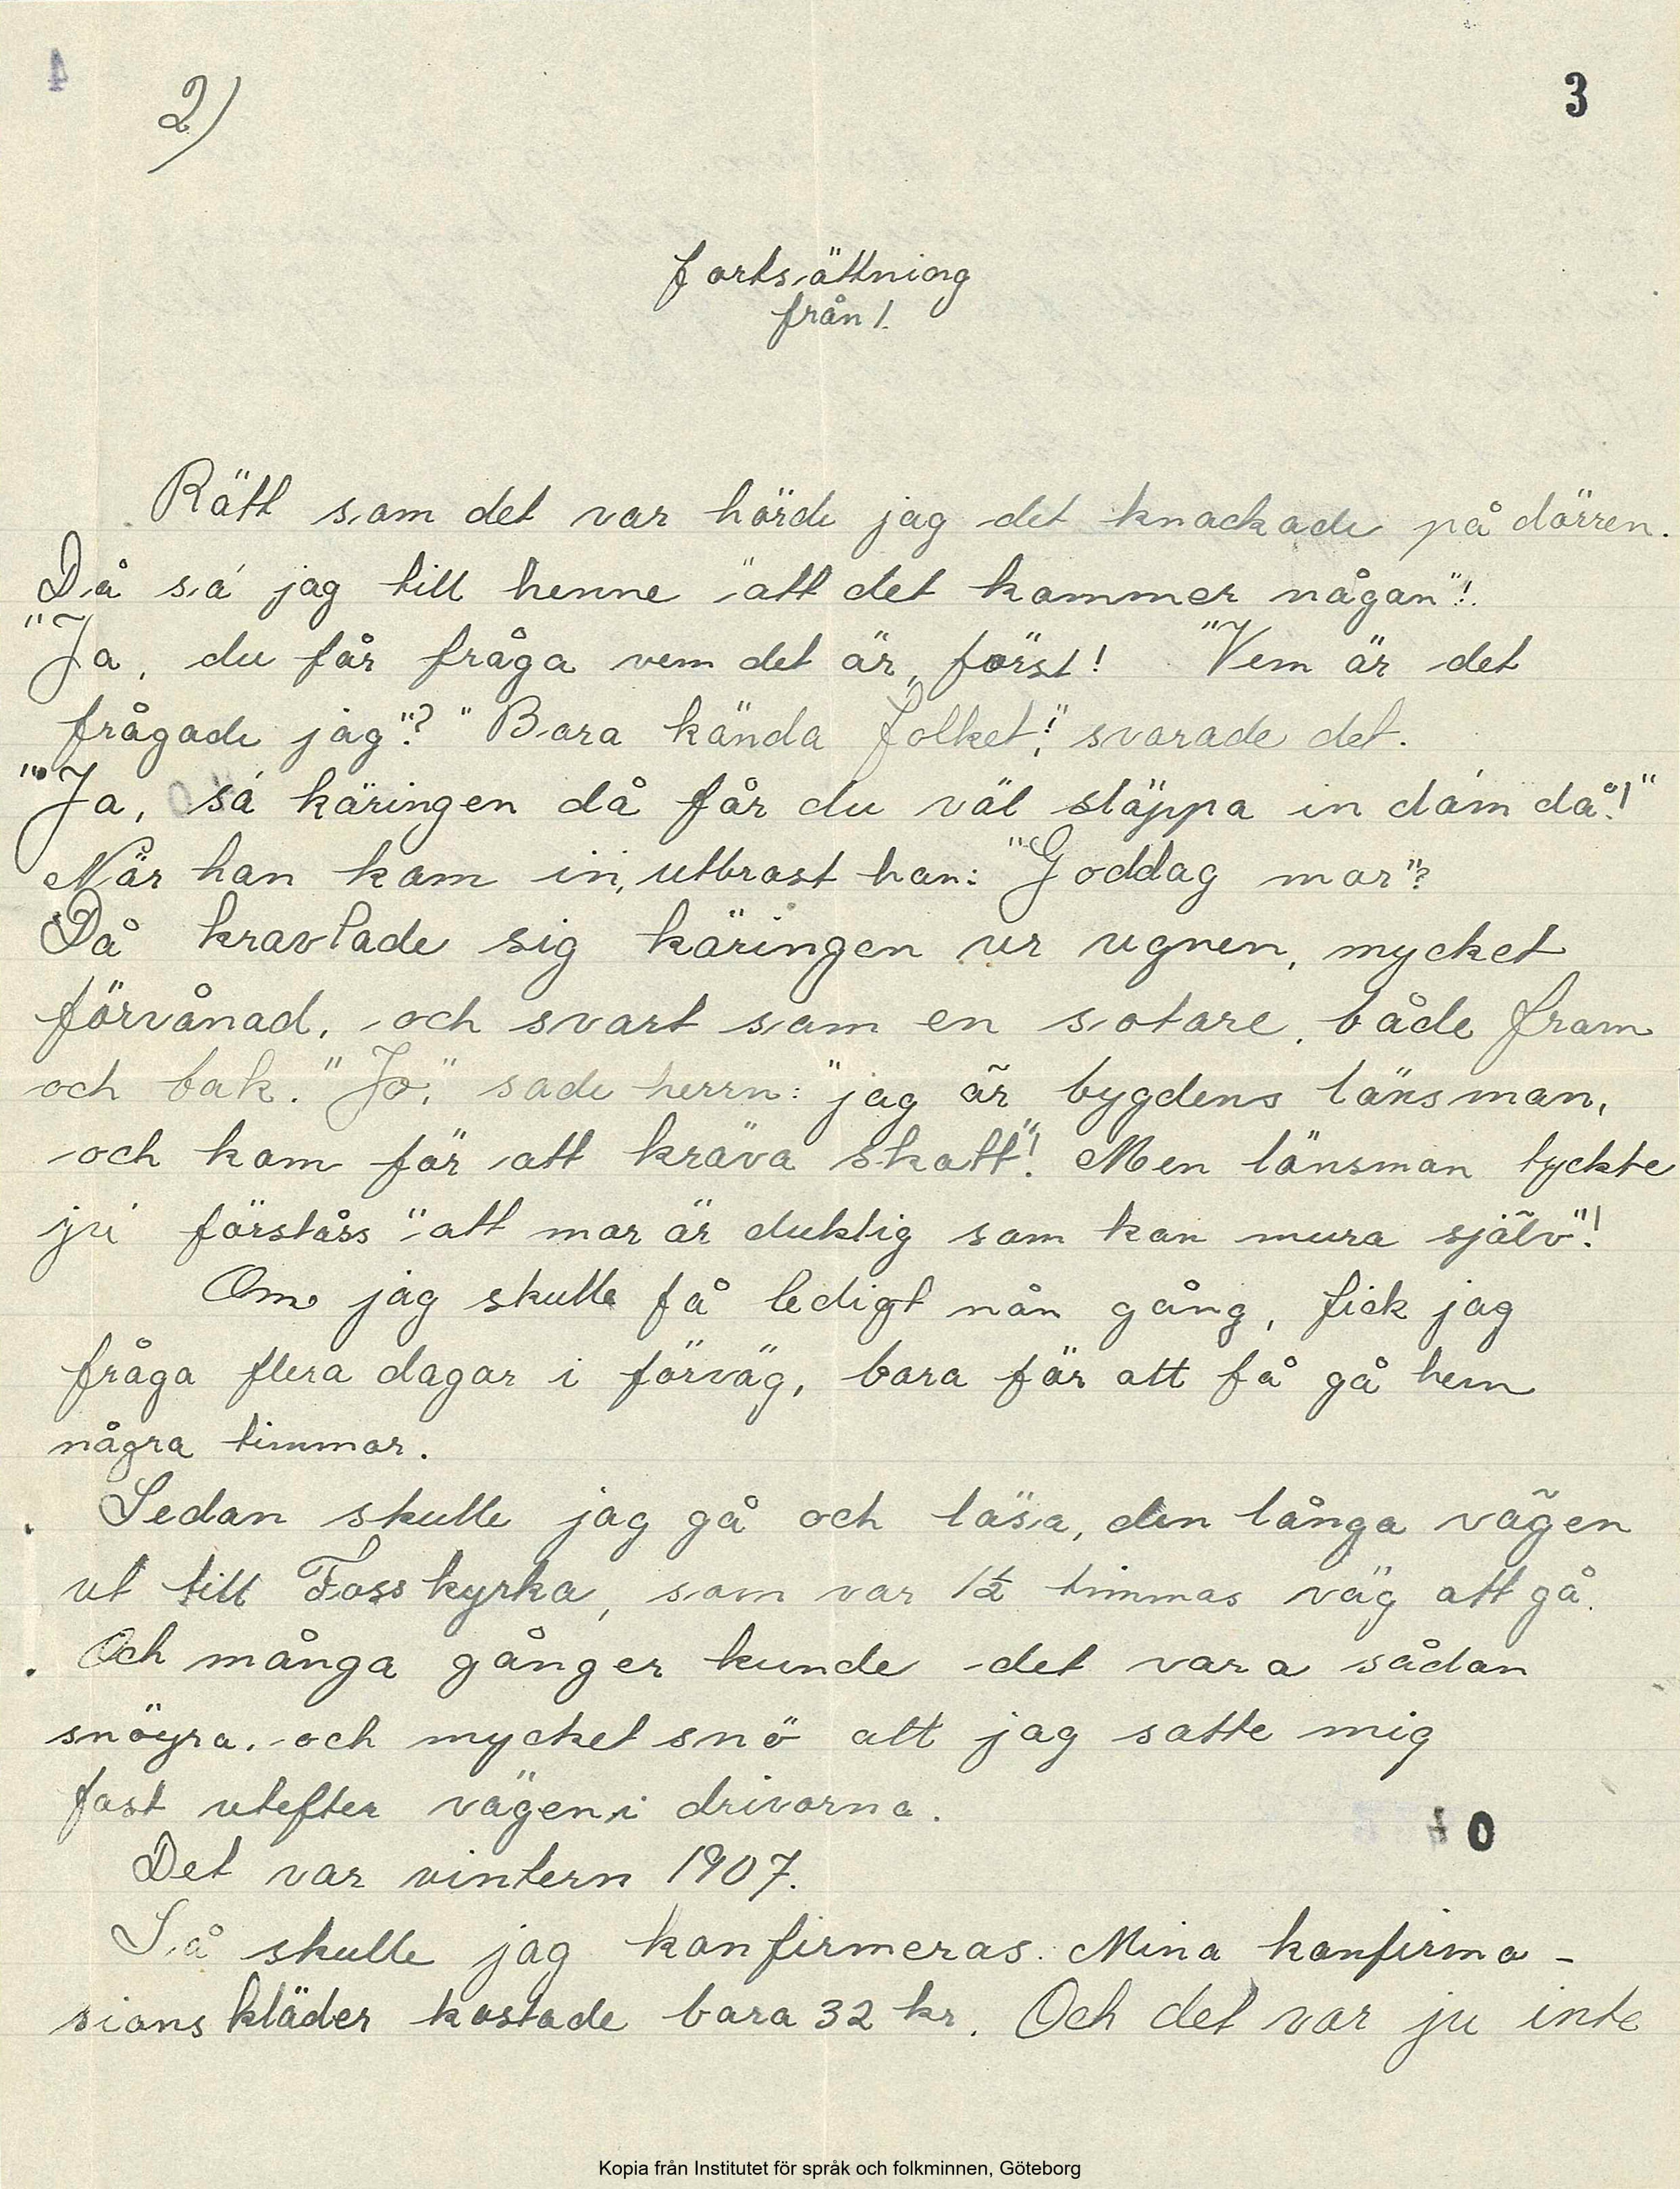 2)
3
fortsättning
från 1.
Rätt som det var hörde jag det knackade på dörren.
Då sá jag till henne "att det kommer någon"!
"Ja, du får fråga vem det är, först! "Vem är det
frågade jag"? "Bara kända folket!", svarade det.
"Ja, sá käringen då får du väl släppa in dám då!"
När han kom in, utbrast han: "Goddag mor"?
Då kravlade sig käringen ur ugnen, mycket
förvånad, och svart som en sotare, både fram
och bak. "Jo," sade herrn: "jag är bygdens länsman,
och kom för att kräva skatt"! Men länsman tyckte
ju förståss "att mor är duktig som kan mura själv"!
Om jag skulle få ledigt nån gång, fick jag
fråga flera dagar i förväg, bara för att få gå hem
några timmar.
Sedan skulle jag gå och läsa, den långa vägen
ut till Foss kyrka, som var 1½ timmas väg att gå.
Och många gånger kunde det vara sådan
snöyra, och mycket snö att jag satte mig
fast utefter vägen i drivorna.
0
Det var vintern 1907.
Så skulle jag konfirmeras. Mina konfirma-
sions kläder kostade bara 32 kr. Och det var ju inte
Kopia från Institutet för språk och folkminnen, Göteborg